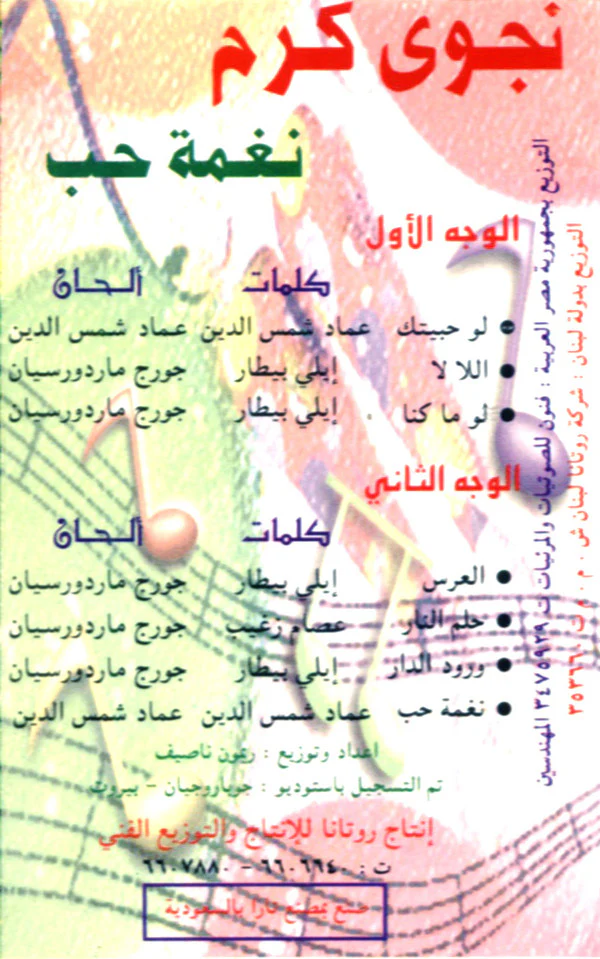 نجوى كرم
نغمة حب
الوجه الأول
كلمات ألحان
• لو حبيتك عماد شمس الدين عماد شمس الدين
• اللا لا إيلي بيطار جورج ماردورسيان
• لو ما كنا إيلي بيطار جورج ماردورسيان
الوجه الثاني
كلمات ألحان
• العرس إيلي بيطار جورج ماردورسيان
• حلم النار عصام زغيب جورج ماردورسيان
• ورود الدار إيلي بيطار جورج ماردورسيان
• نغمة حب عماد شمس الدين عماد شمس الدين
اعداد وتوزيع : ريمون ناصيف
تم التسجيل باستوديو : جوباروجيان - بيروت
إنتاج روتانا للإنتاج والتوزيع الفني
ت : ٦٦٠٦٦٤٠ - ٦٦٠٧٨٨٠
صنع بمصنع تارا بالسعودية
التوزيع بجمهورية مصر العربية : فنون للصوتيات والمرئيات ت ٣٤٧٥٩٢٩ المهندسين
التوزيع بدولة لبنان : شركة روتانا لبنان ش . م . م ت ٣٥٣٦٦٠